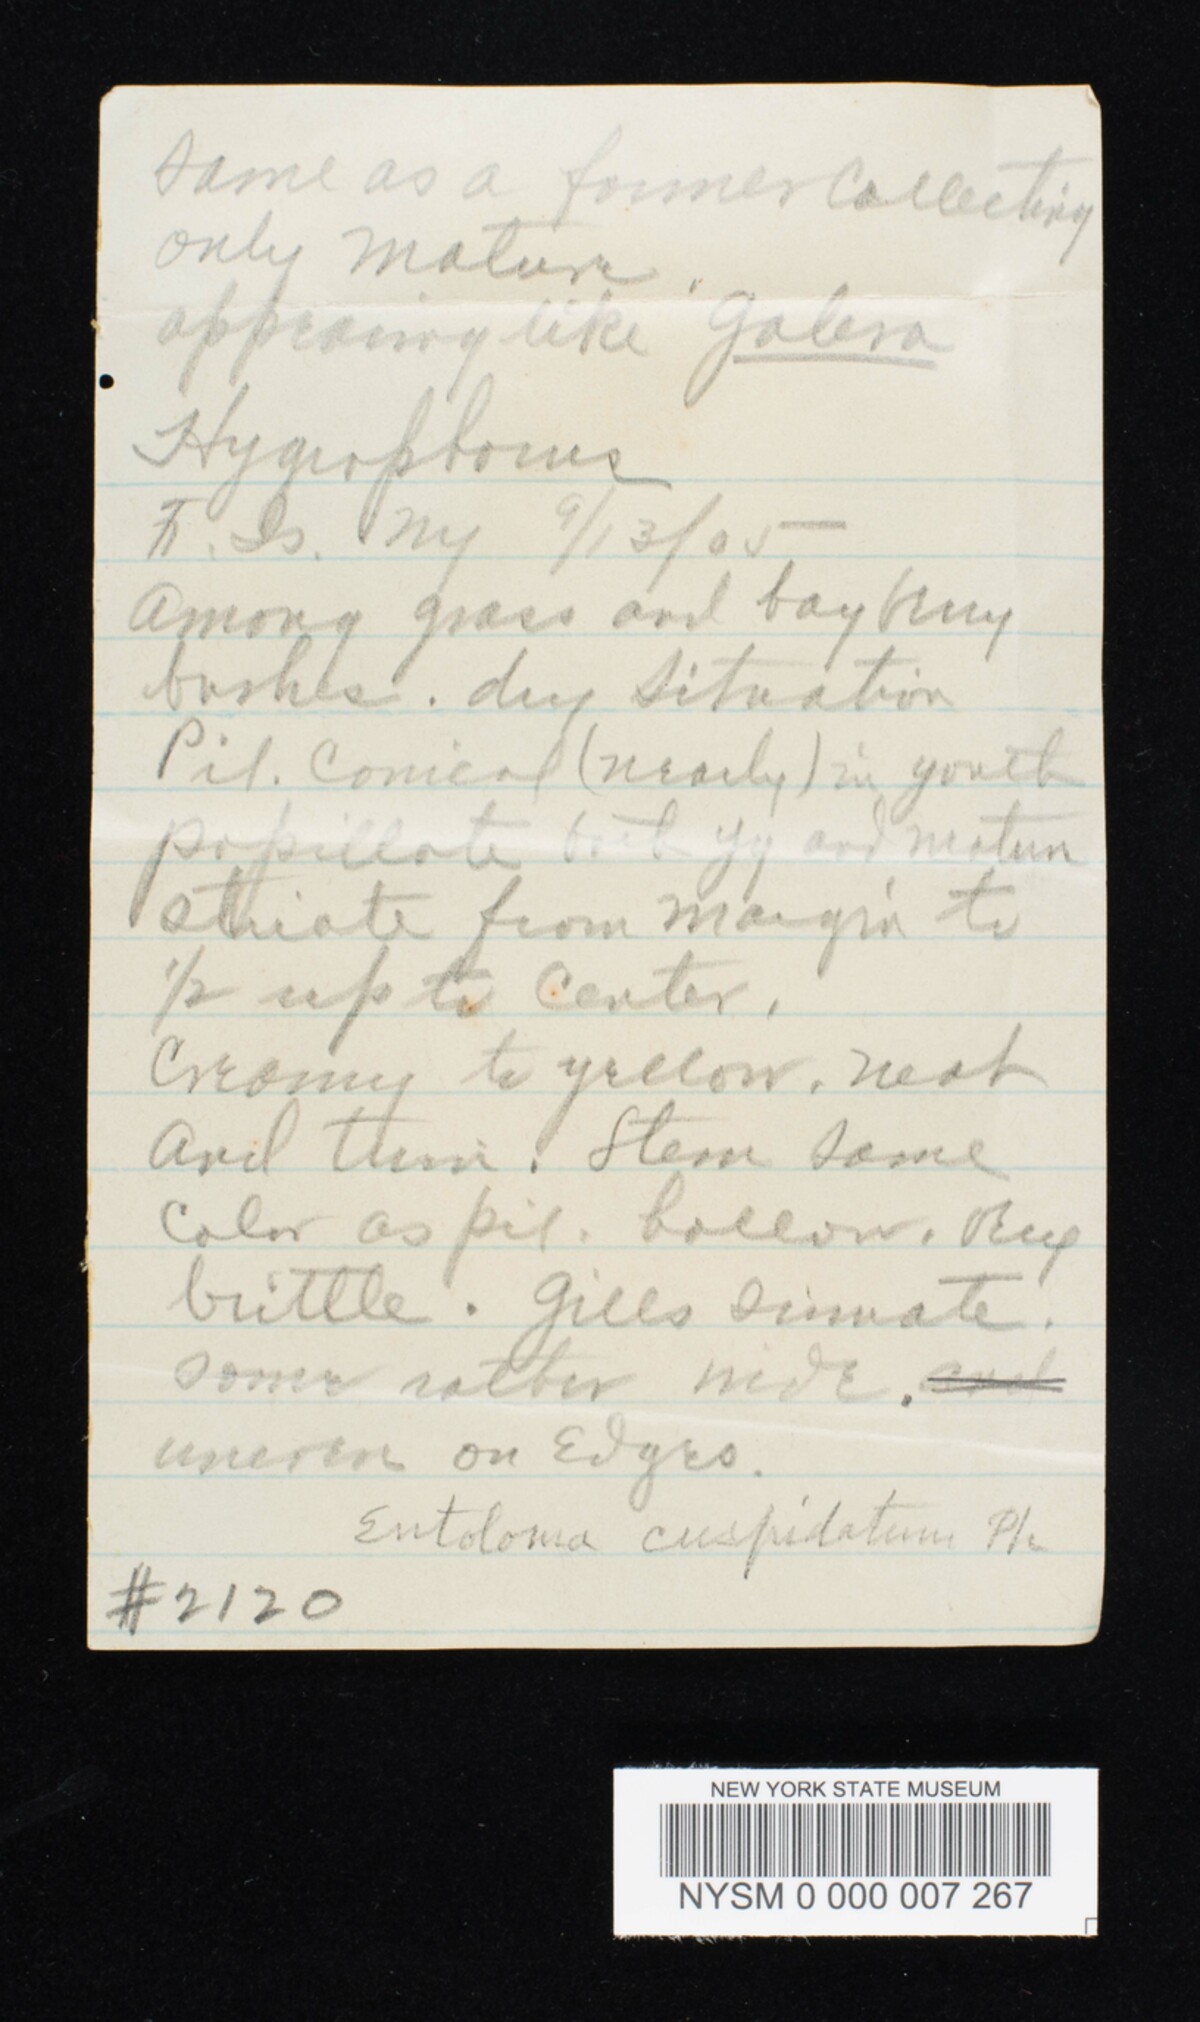 Same as a former Collecting
only mature.
appearing like Galera
Hygrophorus
F. Is. NY 9/13/05
Among grass and bayberry
bushes. dry situation
Pil. Conical (nearly) in youth
papillate both yg and mature
striate from margin to
1/2 up to Center.
Creamy to yellow. neat
and thin. Stem same
Color as pil. hollow. Very
brittle. Gills sinuate.
some rather wide. and
uneven on Edges.
Entoloma cuspidatum Pk
#2120
NEW YORK STATE MUSEUM
NYSM 0 000 007 267